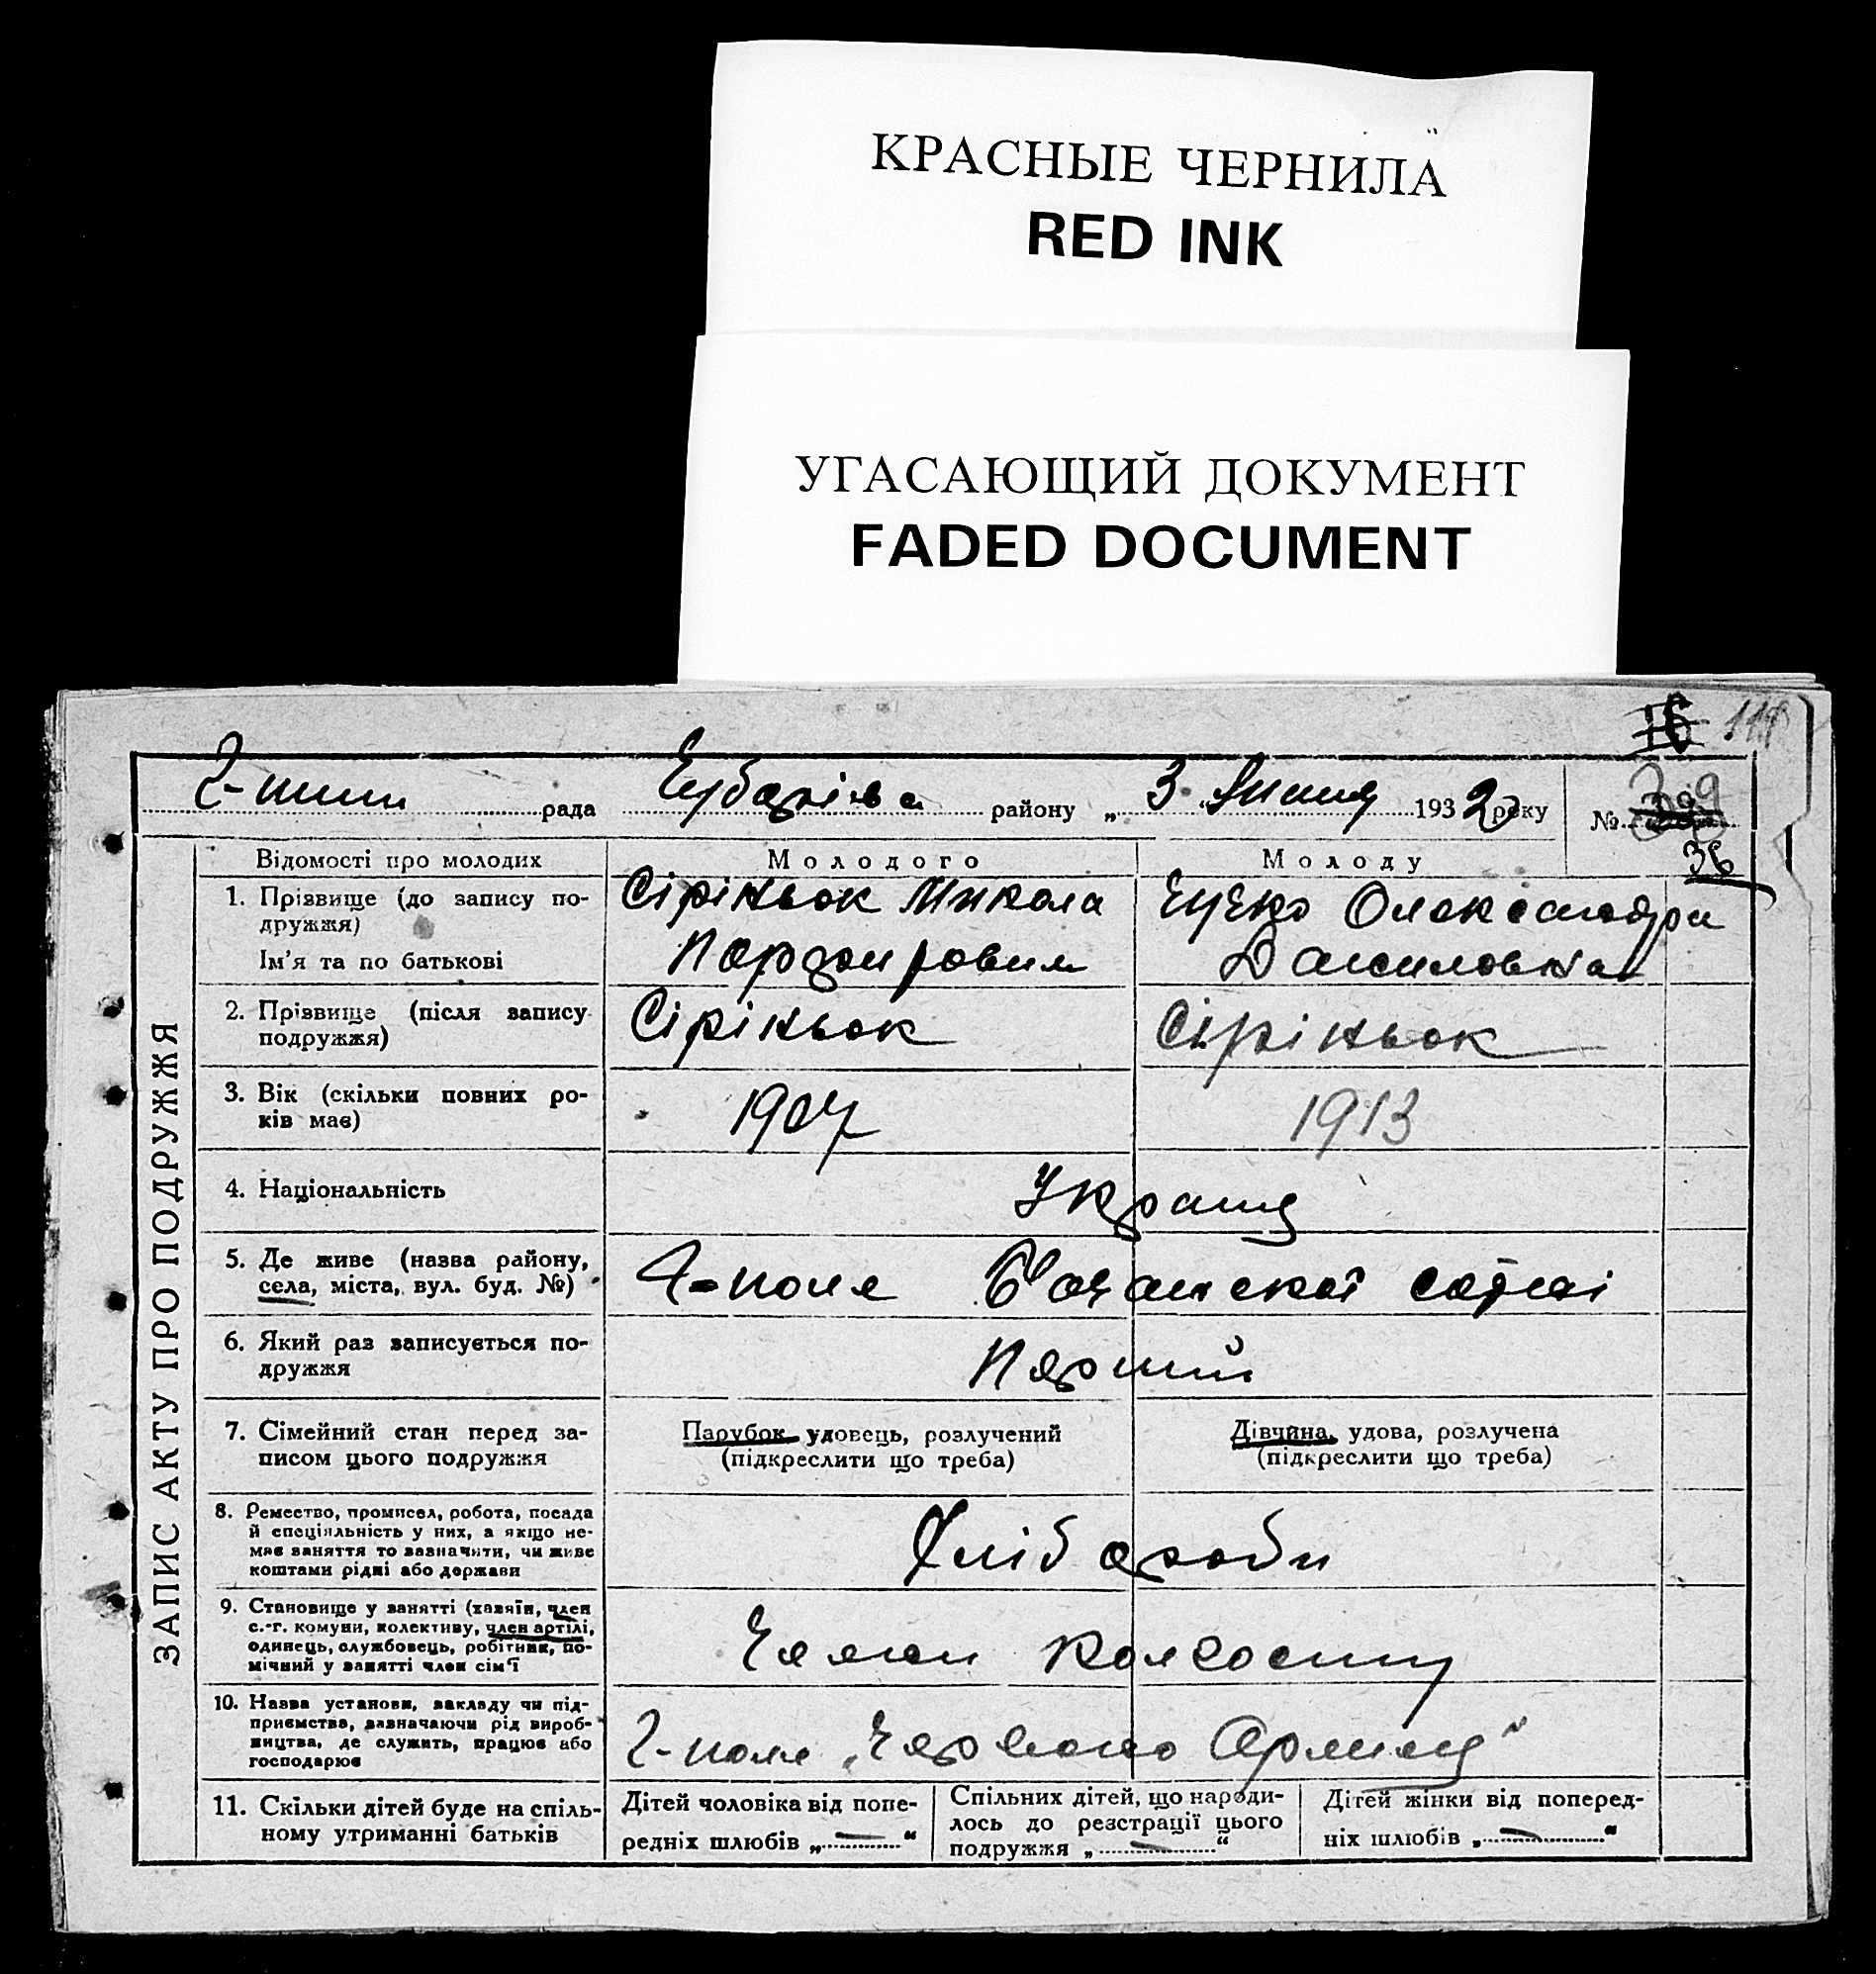 КРАСНЫЕ ЧЕРНИЛА
RED INK
УГАСАЮЩИЙ ДОКУМЕНТ
FADED DOCUMENT
16 118
рада району „ 3 “ 1932 року №
36
ЗАПИС АКТУ ПРО ПОДРУЖЖЯ
Відомості про молодих Молодого Молоду
1. Прізвище (до запису по-
дружжя)
Ім'я та по батькові
Сіріньок Микола
Порфирович
Олександра
Даниловна
2. Прізвище (після запису
подружжя)
Сіріньок Сіріньок
3. Вік (скільки повних ро-
ків має)
1907 1913
4. Національність
Україн
5. Де живе (назва району,
села, міста, вул. буд. №)
сотні
6. Який раз записується по-
дружжя
Перший
7. Сімейний стан перед за-
писом цього подружжя
Парубок, удовець, розлучений
(підкреслити що треба)
Дівчина, удова, розлучена
(підкреслити що треба)
8. Ремество, промисел, робота, посада
й спеціяльність у них, а якщо не-
має заняття то зазначити, чи живе
коштами рідні або держави
Хлібороби
9. Становище у занятті (хазяїн, член
с.-г. комуни, колективу, член артілі,
одинець, службовець, робітник, по-
мічний у занятті член сім'ї
Члени колгоспу
10. Назва установи, закладу чи під-
приємства, зазначаючи рід вироб-
ництва, де служить, працює або
господарює
11. Скільки дітей буде на спіль-
ному утриманні батьків
Дітей чоловіка від попе-
редніх шлюбів „ — “
Спільних дітей, що народи-
лось до реєстрації цього
подружжя „ — “
Дітей жінки від поперед-
ніх шлюбів „ — “